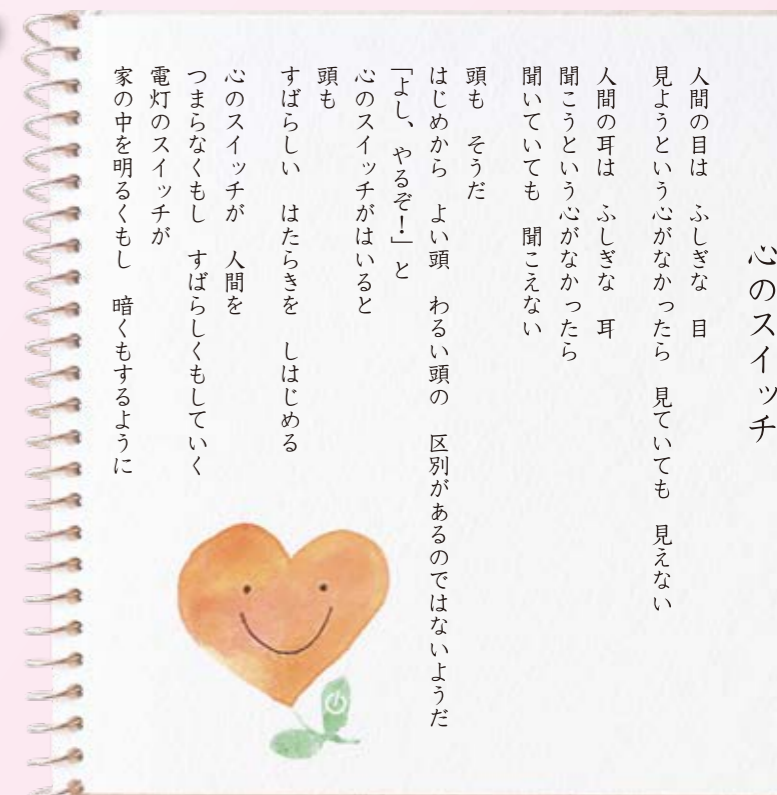 心のスイッチ
人間の目は　ふしぎな　目
見ようという心がなかったら　見ていても　見えない
人間の耳は　ふしぎな　耳
聞こうという心がなかったら
聞いていても　聞こえない
頭も　そうだ
はじめから　よい頭　わるい頭の　区別があるのではないようだ
「よし、やるぞ！」と
心のスイッチがはいると
頭も
すばらしい　はたらきを　しはじめる
心のスイッチが　人間を
つまらなくもし　すばらしくもしていく
電灯のスイッチが
家の中を明るくもし　暗くもするように